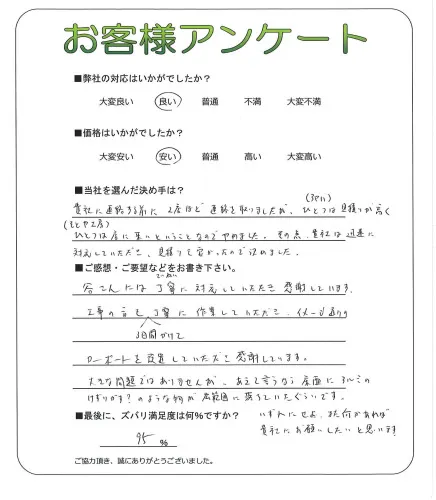 お客様アンケート
■弊社の対応はいかがでしたか？
大変良い 良い 普通 不満 大変不満
■価格はいかがでしたか？
大変安い 安い 普通 高い 大変高い
■当社を選んだ決め手は？
貴社に連絡する前に、2店ほど連絡を取りましたが、ひとつは見積りが高く
ひとつは店に来いということなのでやめました。その点、貴社は迅速に
対応していただき、見積りも安かったので決めました。
■ご感想・ご要望などをお書き下さい。
さんには丁寧に対応していただき感謝しています。
工事の方も丁寧に作業していただき、イメージ通りの
3日間かけて
カーポートを設置していただき感謝しています。
大きな問題ではありませんが、あえて言うなら床面にアルミの
けずりカス？のような物が広範囲に落ちていたぐらいです。
いずれにせよ、また何かあれば
貴社にお願いしたいと思います!
■最後に、ズバリ満足度は何%ですか？
95 %
ご協力頂き、誠にありがとうございました。